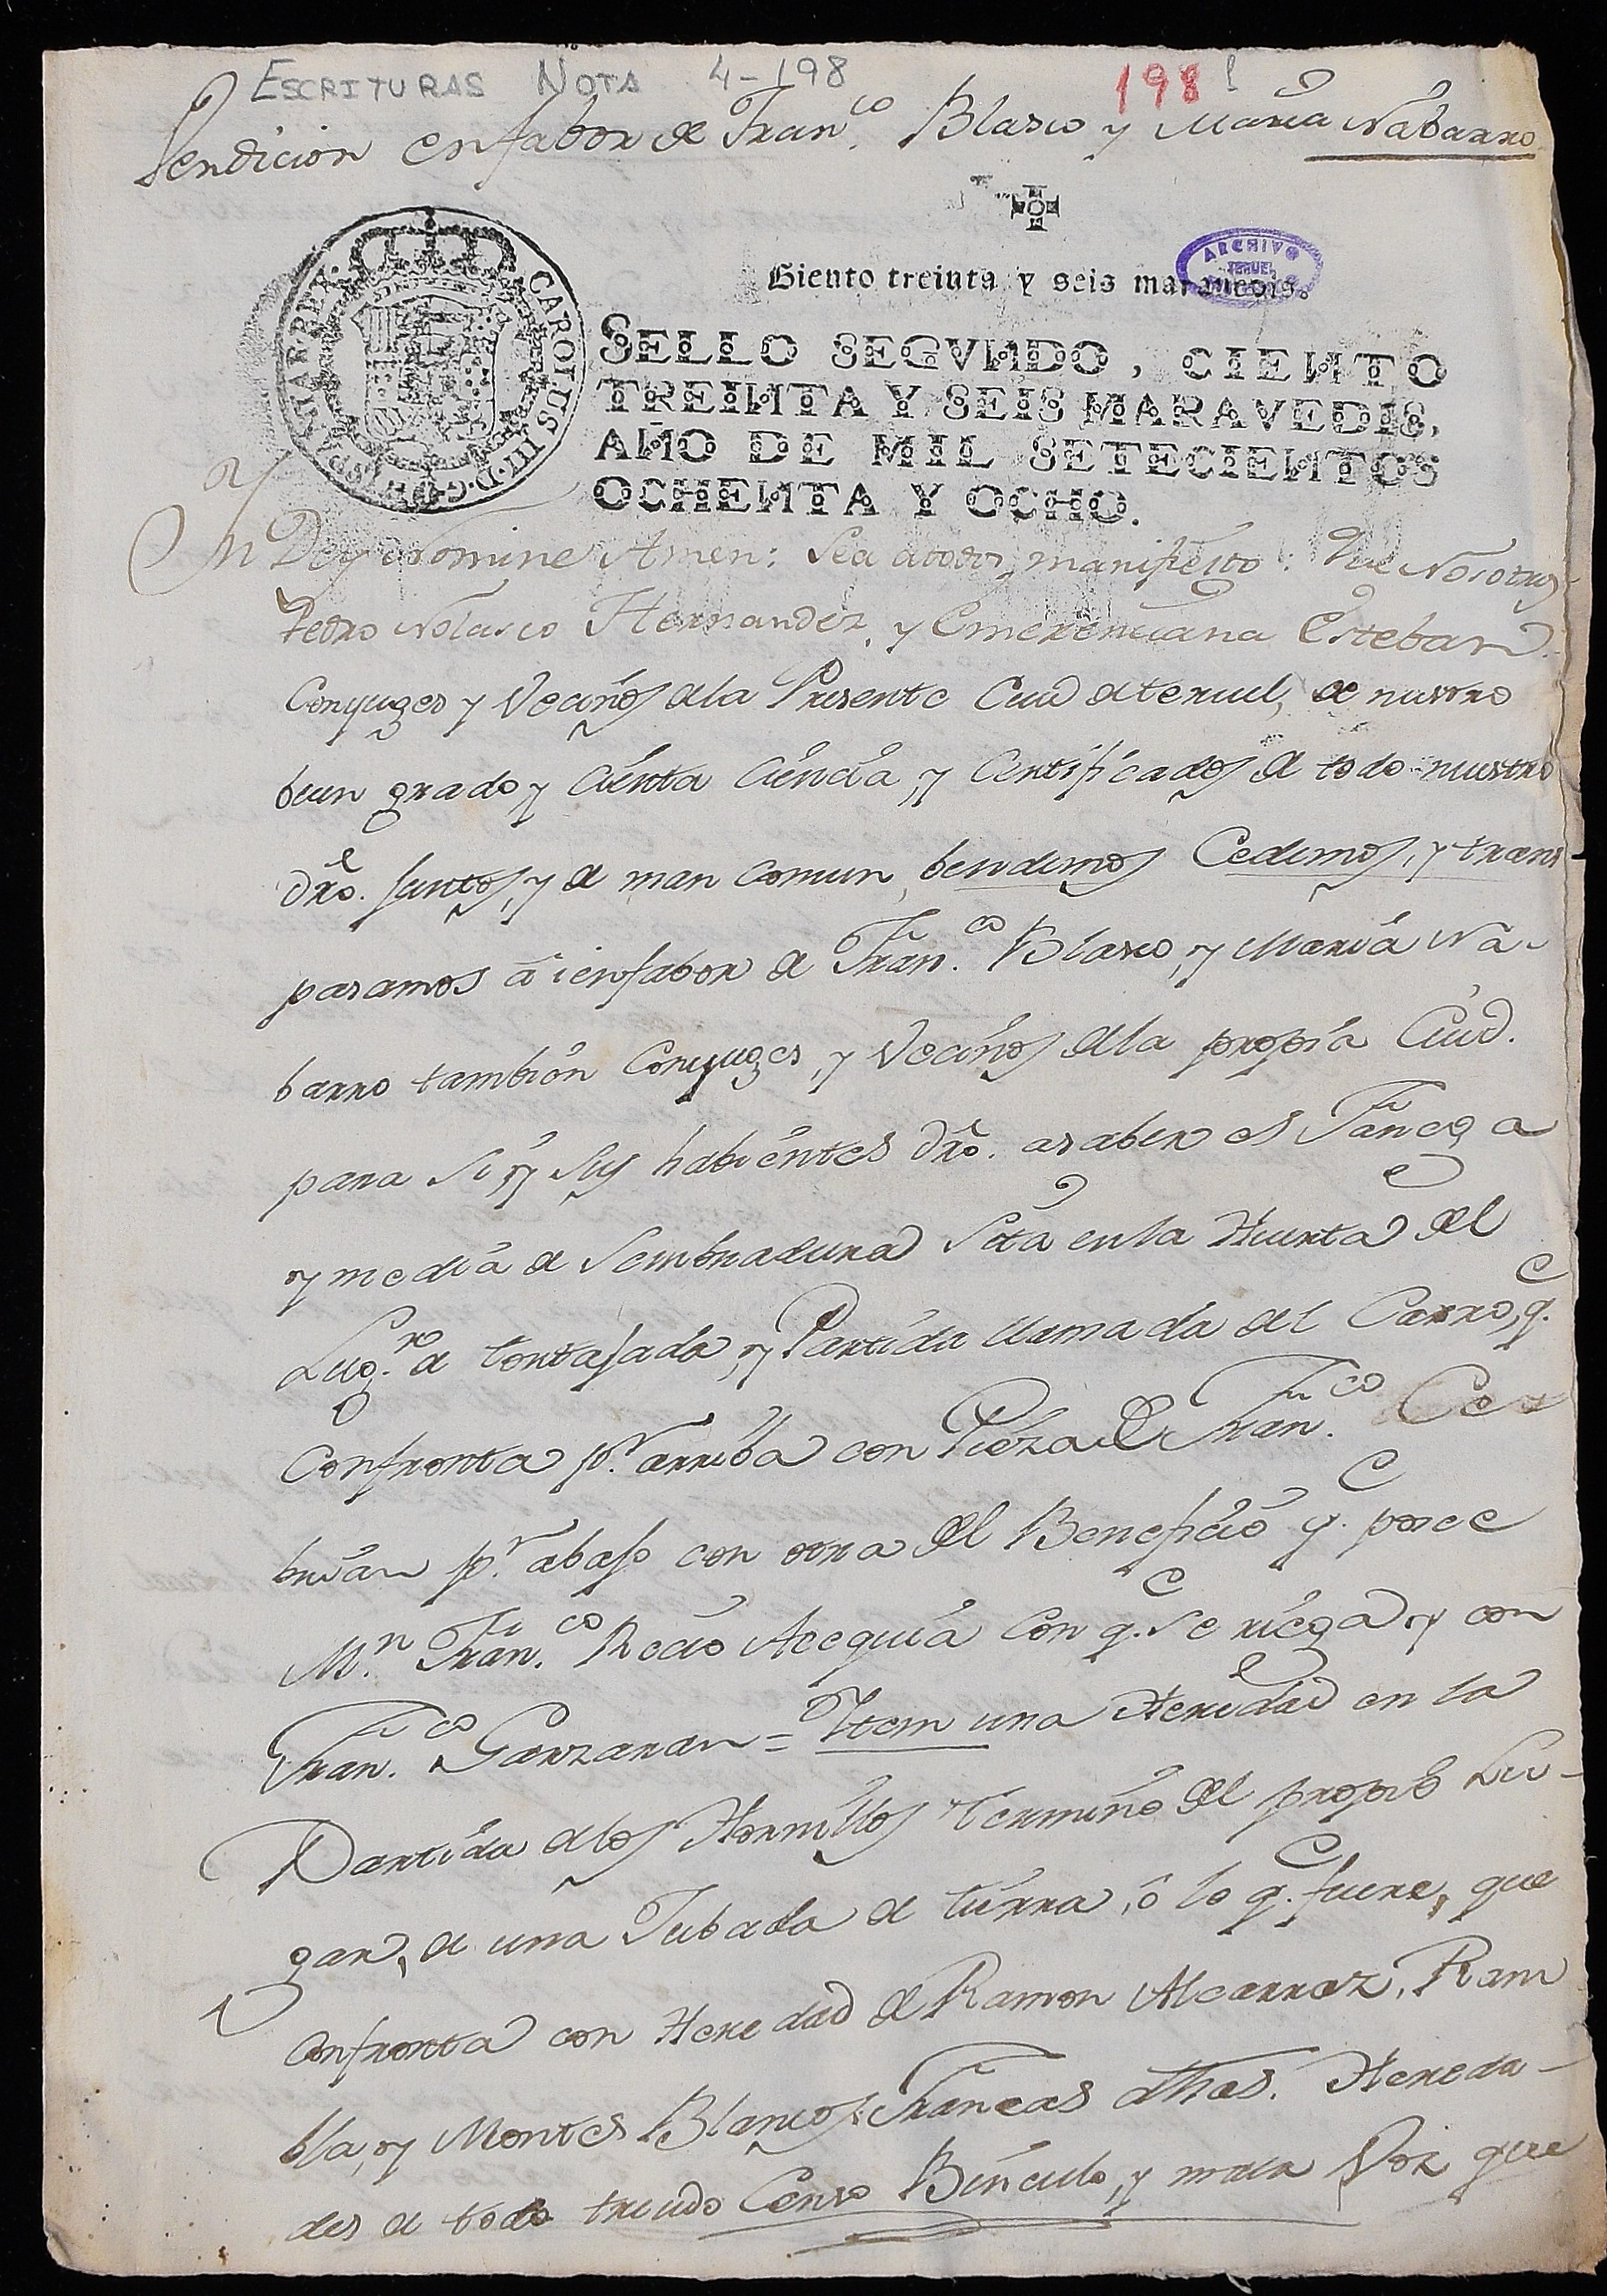 ESCRITURAS NOTA 4-198 198
Vendicion en fabor de Fran.co Blasco y Maria Nabarro
ARCHIVO
TERUEL
Ciento treinta y seis maravedis.
CAROLUS III D G HISPANIAR REX
SELLO SEGVNDO, CIENTO
TREINTA Y SEIS MARAVEDIS,
AÑO DE MIL SETECIENTOS
OCHENTA Y OCHO.
In Dey Nomine Amen: Sea atodos manifiesto: Que Nosotros
Pedro Nolasco Hernandez, y Emerenciana Esteban
Conyuges y Vecinos dela Presente Ciud deteruel, de nuestro
buen grado y cierta ciencia, y Certificados de todo nuestro
dro. Juntos, y de man comun, bendemos Cedemos, y trans
pasamos á i enfabor de Fran.co Blasco, y Maria Na-
barro tambien Conyuges, y Vecinos dela propia Ciud.
para Si, y Sus habientes dro. asaber es Fanega
y media de Sembradura Sita en la Huerta del
Lug.r de tortajada, y Partida llamada del Carro, q.e
Confronta p.r arriba con Pieza de Fran.co Ce
brian p.r abajo con otra del Beneficio q.e posee
M.n Fran.co Recio Acequia con q.e Se riega y con
Fran.co Garzaran = Item una Heredad en la
Partida delos Hornillos termino del propio Lu-
gar, de una Jubada de tierra, ó lo q.e fuere, que
confronta con Heredad de Ramon Alcarraz, Ram
bla, y Montes Blancos: Francas dhas. Hereda-
des de todo treudo Censo Binculo, y mala Voz que